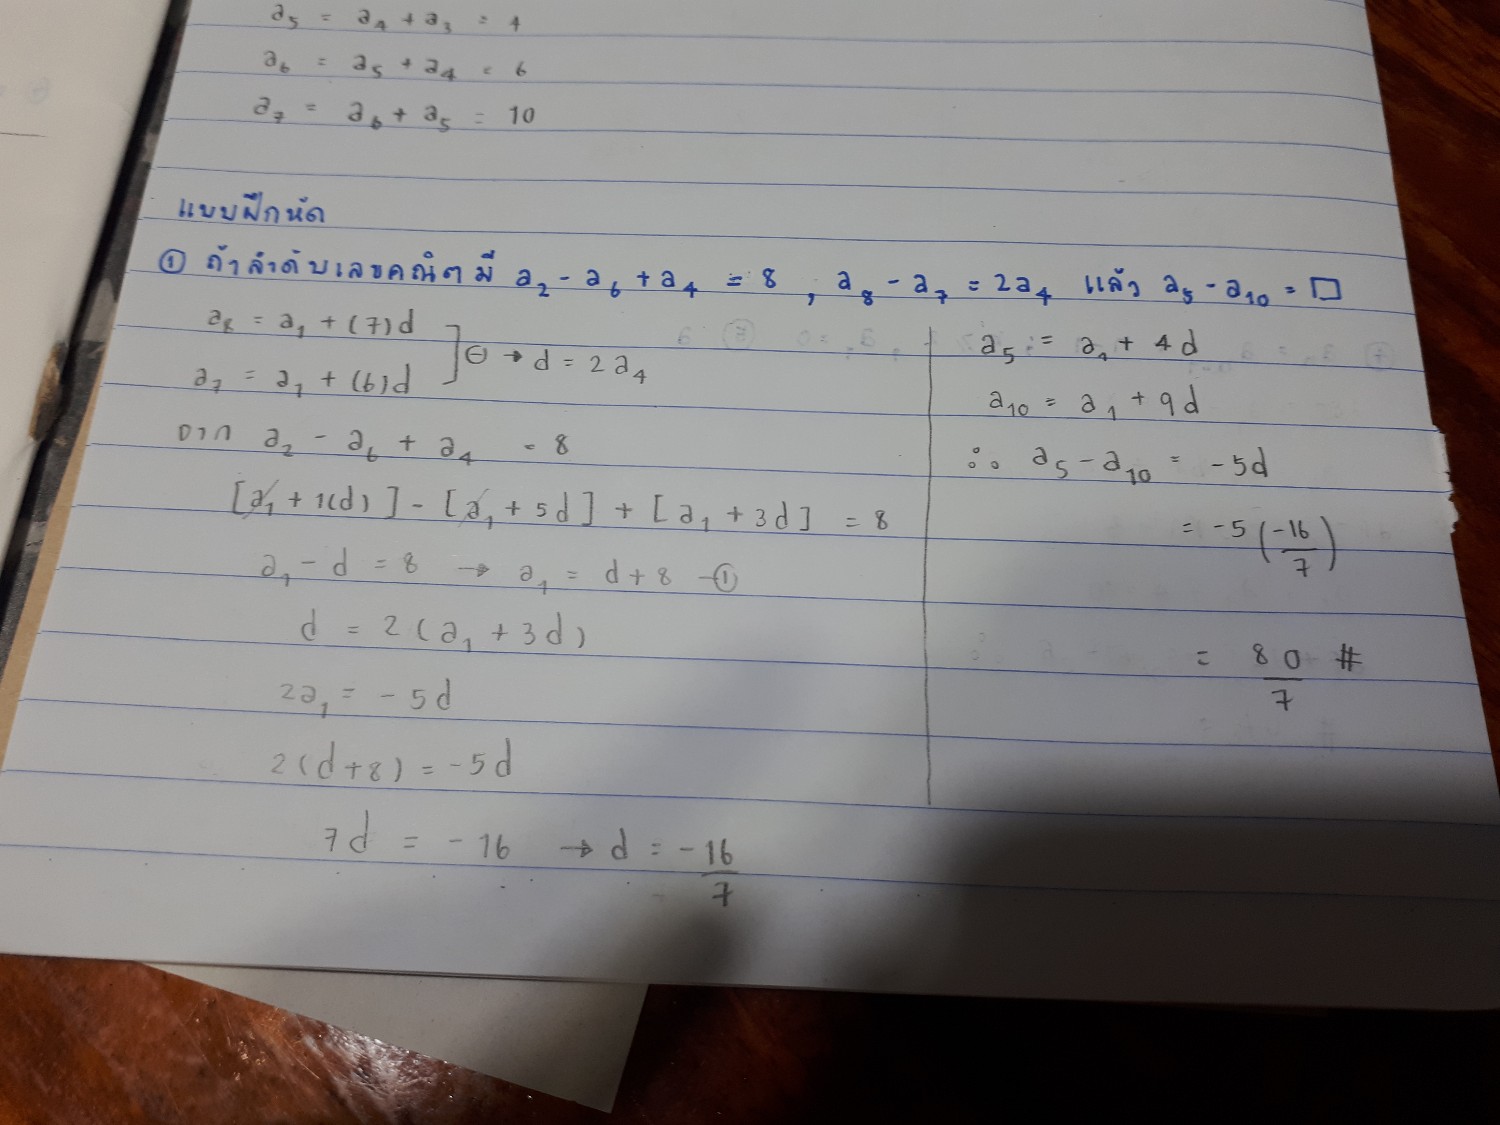 a₅ = a₄ + a₃ = 4
a₆ = a₅ + a₄ = 6
a₇ = a₆ + a₅ = 10
แบบฝึกหัด
① ถ้าลำดับเลขคณิตมี a₂ - a₆ + a₄ = 8 , a₈ - a₇ = 2a₄ แล้ว a₅ - a₁₀ = □
a₈ = a₁ + (7)d
a₇ = a₁ + (6)d
⊖ → d = 2a₄
จาก a₂ - a₆ + a₄ = 8
[a₁ + 1(d)] - [a₁ + 5d] + [a₁ + 3d] = 8
a₁ - d = 8 → a₁ = d + 8 —①
d = 2(a₁ + 3d)
2a₁ = - 5d
2(d+8) = -5d
7d = - 16 → d = -16/7
a₅ = a₁ + 4d
a₁₀ = a₁ + 9d
∴ a₅ - a₁₀ = -5d
= -5(-16/7)
= 80/7 #